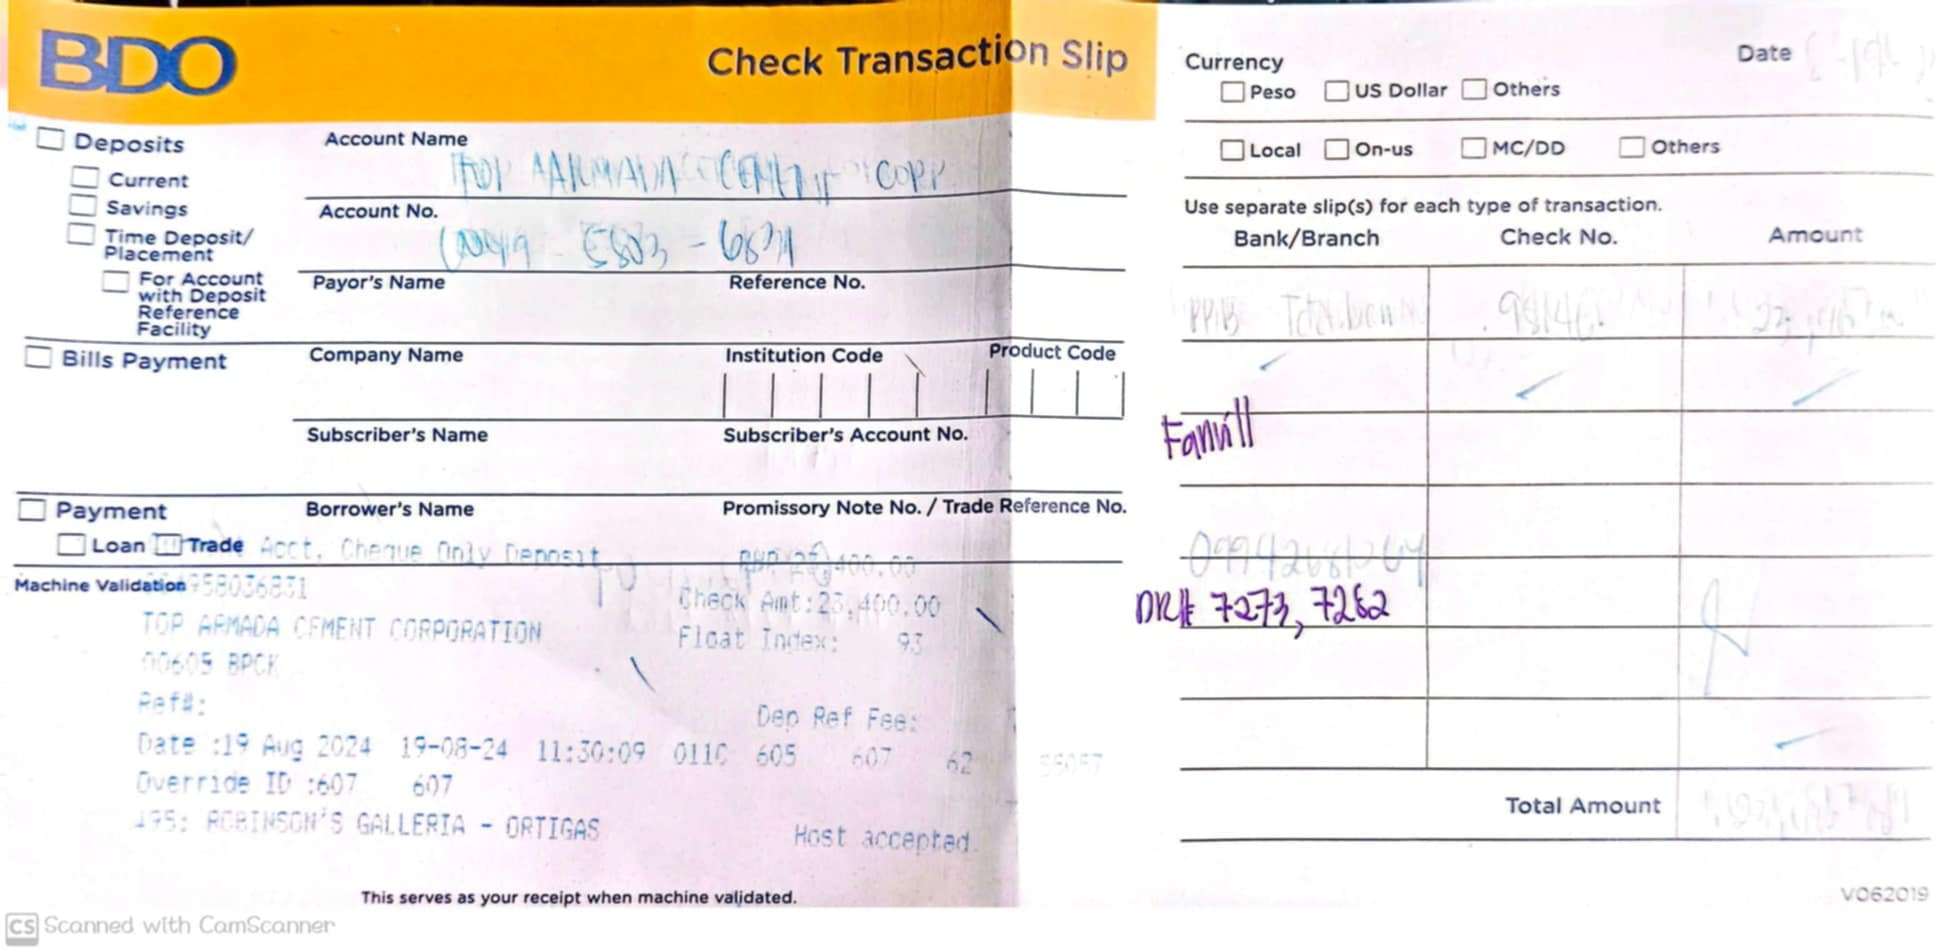 BDO
Check Transaction Slip
Deposits
Current
Savings
Time Deposit/
Placement
For Account
with Deposit
Reference
Facility
Account Name
CORP
Account No.
Payor's Name Reference No.
Bills Payment
Company Name Institution Code Product Code
Subscriber's Name Subscriber's Account No.
Payment
Loan Trade
Borrower's Name Promissory Note No. / Trade Reference No.
Acct. Cheque Only Deposit
Machine Validation
Check Amt:23,400.00
TOP ARMADA CEMENT CORPORATION
Float Index: 93
00605 BPCK
Ref#:
Dep Ref Fee:
Date :19 Aug 2024 19-08-24 11:30:09 011C 605 607 62
Override ID :607 607
495: ROBINSON'S GALLERIA - ORTIGAS
Host accepted.
This serves as your receipt when machine validated.
Currency Date
Peso US Dollar Others
Local On-us MC/DD Others
Use separate slip(s) for each type of transaction.
Bank/Branch Check No. Amount
Fanvill
DR# 7273, 7282
Total Amount
V062019
CS Scanned with CamScanner